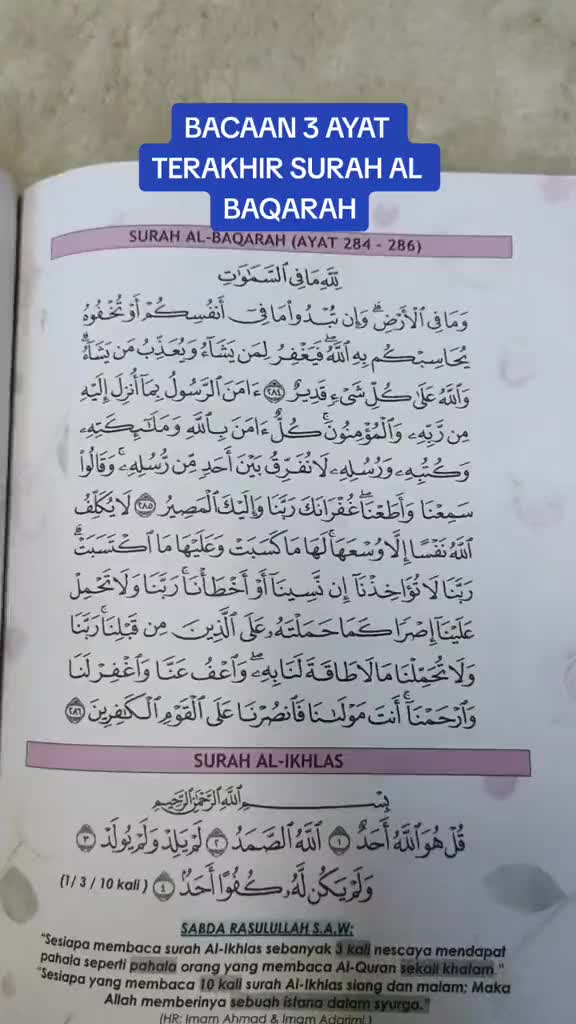 BACAAN 3 AYAT
TERAKHIR SURAH AL
BAQARAH
SURAH AL-BAQARAH (AYAT 284 - 286)
لِلَّهِ مَا فِي السَّمَاوَاتِ
وَمَا فِي الْأَرْضِ ۗ وَإِن تُبْدُوا مَا فِي أَنفُسِكُمْ أَوْ تُخْفُوهُ
يُحَاسِبْكُم بِهِ اللَّهُ ۖ فَيَغْفِرُ لِمَن يَشَاءُ وَيُعَذِّبُ مَن يَشَاءُ ۗ
وَاللَّهُ عَلَىٰ كُلِّ شَيْءٍ قَدِيرٌ ﴿٢٨٤﴾ ءَامَنَ الرَّسُولُ بِمَا أُنزِلَ إِلَيْهِ
مِن رَّبِّهِ وَالْمُؤْمِنُونَ ۚ كُلٌّ ءَامَنَ بِاللَّهِ وَمَلَائِكَتِهِ
وَكُتُبِهِ وَرُسُلِهِ لَا نُفَرِّقُ بَيْنَ أَحَدٍ مِّن رُّسُلِهِ ۚ وَقَالُوا
سَمِعْنَا وَأَطَعْنَا ۖ غُفْرَانَكَ رَبَّنَا وَإِلَيْكَ الْمَصِيرُ ﴿٢٨٥﴾ لَا يُكَلِّفُ
اللَّهُ نَفْسًا إِلَّا وُسْعَهَا ۚ لَهَا مَا كَسَبَتْ وَعَلَيْهَا مَا اكْتَسَبَتْ ۗ
رَبَّنَا لَا تُؤَاخِذْنَا إِن نَّسِينَا أَوْ أَخْطَأْنَا ۚ رَبَّنَا وَلَا تَحْمِلْ
عَلَيْنَا إِصْرًا كَمَا حَمَلْتَهُ عَلَى الَّذِينَ مِن قَبْلِنَا ۚ رَبَّنَا
وَلَا تُحَمِّلْنَا مَا لَا طَاقَةَ لَنَا بِهِ ۖ وَاعْفُ عَنَّا وَاغْفِرْ لَنَا
وَارْحَمْنَا ۚ أَنتَ مَوْلَانَا فَانصُرْنَا عَلَى الْقَوْمِ الْكَافِرِينَ ﴿٢٨٦﴾
SURAH AL-IKHLAS
بِسْمِ اللَّهِ الرَّحْمَٰنِ الرَّحِيمِ
قُلْ هُوَ اللَّهُ أَحَدٌ ﴿١﴾ اللَّهُ الصَّمَدُ ﴿٢﴾ لَمْ يَلِدْ وَلَمْ يُولَدْ ﴿٣﴾
وَلَمْ يَكُن لَّهُ كُفُوًا أَحَدٌ ﴿٤﴾ (1/ 3 / 10 kali )
SABDA RASULULLAH S.A.W:
"Sesiapa membaca surah Al-Ikhlas sebanyak 3 kali nescaya mendapat
pahala seperti pahala orang yang membaca Al-Quran sekali khatam."
"Sesiapa yang membaca 10 kali surah Al-Ikhlas siang dan malam; Maka
Allah memberinya sebuah istana dalam syurga."
(HR: Imam Ahmad & Imam Adarimi )